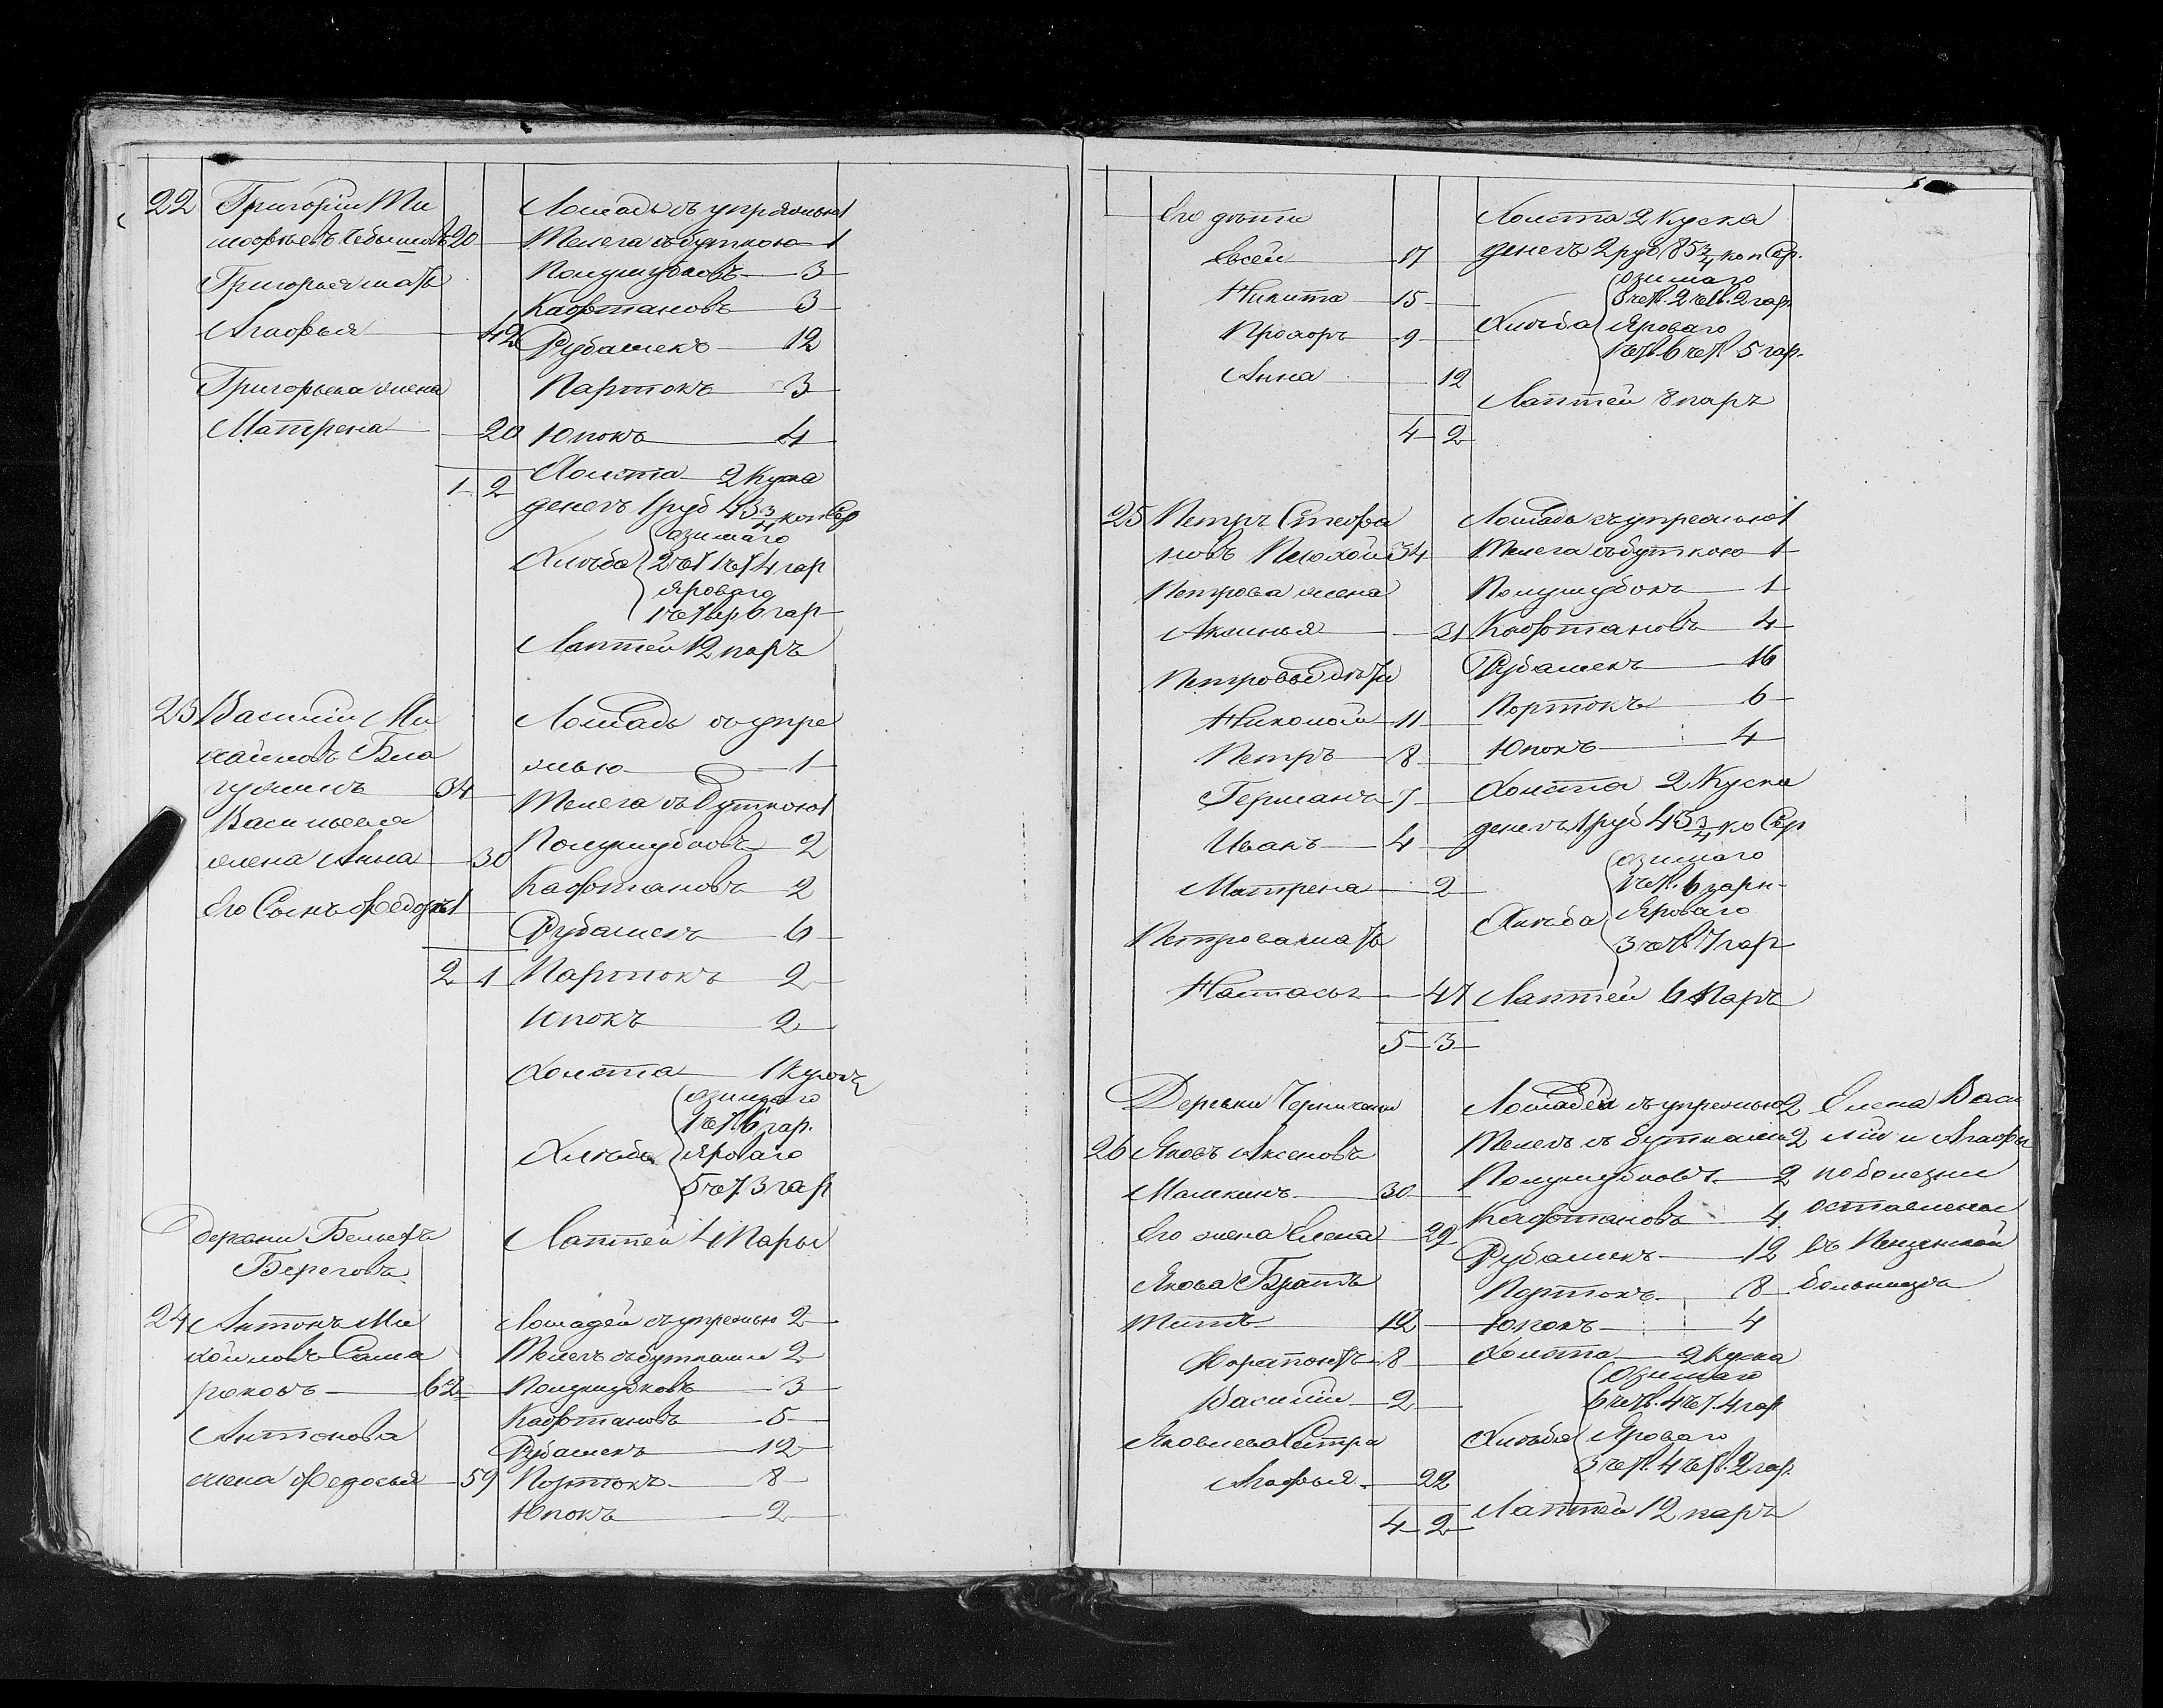 22 Григорій Ти
мофѣевъ Чебышовъ 20
Григорья мать
Агафья 42
Григорьева жена
Матрена 20
1 2
Лошадь съ упряжью 1
Телега съ буткою 1
Полушубковъ 3
Кафтановъ 3
Рубашекъ 12
Партокъ 3
Юпокъ 4
Холста 2 куска
денегъ 1 руб 43 3/4 коп Сер
Хлѣба
озимаго
2 чет 1 чет 4 гар
яроваго
1 четвер 6 гар
Лаптей 12 паръ
23 Василій Ми
хайловъ
34
Васильева
жена Анна 30
Его Сынъ Федоръ 1
2 1
Лошадь съ упре
жью 1
Телега съ буткою 1
Полушубковъ 2
Кафтановъ 2
Рубашекъ 6
Партокъ 2
Юпокъ 2
Холста 1 кусокъ
Хлѣба
озимаго
1 чет. 6 гар.
яроваго
5 чет. 3 гар
Лаптей 4 Пары
Деревни Белыхъ
Береговъ
24 Антонъ Ми
хайловъ Сама
руковъ 62
Антонова
жена Федосья 59
Лошадей съ упрежью 2
Телегъ съ бутками 2
Полушубковъ 3
Кафтановъ 5
Рубашекъ 12
Портокъ 8
Юпокъ 2
Его дѣти
Евсей 17
Никита 15
Прохоръ 9
Анна 12
4 2
Холста 2 Куска
денегъ 2 руб 85 3/4 коп Сер.
Хлѣба
озимаго
3 чет. 2 чет. 2 гар
Яроваго
1 чет. 6 чет. 5 гар.
Лаптей 8 паръ
25 Петръ Стефа
новъ 34
Петрова жена
Аксинья 31
Петровы дѣти
Николай 11
Петръ 8
Германъ 7
Иванъ 4
Матрена 2
Петрова мать
Настасья 47
5 3
Лошадь съ упрежью 1
Телега съ буткою 1
Полушубокъ 1
Кафтановъ 4
Рубашекъ 16
Портокъ 6
Юпокъ 4
Холста 2 Куска
денегъ 1 руб 43 3/4 ко Сер
Хлѣба
озимаго
1 чет. 6 гарн.
Яроваго
3 чет. 7 гар
Лаптей 6 Паръ
Деревни
26 Яковъ Аксеновъ
Машкинъ 30
Его жена Елена 29
Якова Братъ
Титъ 12
Харитонъ 8
Василій 2
Яковлева Сестра
Агафья 22
4 2
Лошадей съ упрежью 2
Телегъ съ бутками 2
Полушубковъ 2
Кафтановъ 4
Рубашекъ 12
Портокъ 8
Юпокъ 4
Холста 2 куска
Хлѣба
Озимаго
6 четв. 4 чет. 4 гар
Яроваго
3 чет. 4 чет. 2 гар.
Лаптей 12 паръ
Елена Васи
лій и Агафья
по болезни
оставлены
въ Пензенской
больницѣ